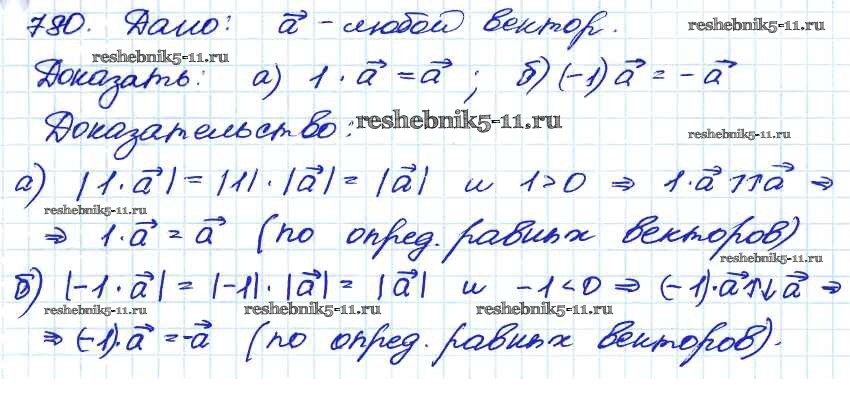 780. Дано: a⃗ - любой вектор. reshebnik5-11.ru
reshebnik5-11.ru
Доказать: а) 1 · a⃗ = a⃗ ; б) (-1) a⃗ = - a⃗
Доказательство: reshebnik5-11.ru reshebnik5-11.ru
а) |1 · a⃗| = |1| · |a⃗| = |a⃗| и 1 > 0 ⇒ 1 · a⃗ ↑↑ a⃗ ⇒
reshebnik5-11.ru
⇒ 1 · a⃗ = a⃗ (по опред. равных векторов)
reshebnik5-11.ru
б) |-1 · a⃗| = |-1| · |a⃗| = |a⃗| и -1 < 0 ⇒ (-1) · a⃗ ↑↓ a⃗ ⇒
reshebnik5-11.ru reshebnik5-11.ru reshebnik5-11.ru
⇒ (-1) · a⃗ = -a⃗ (по опред. равных векторов).